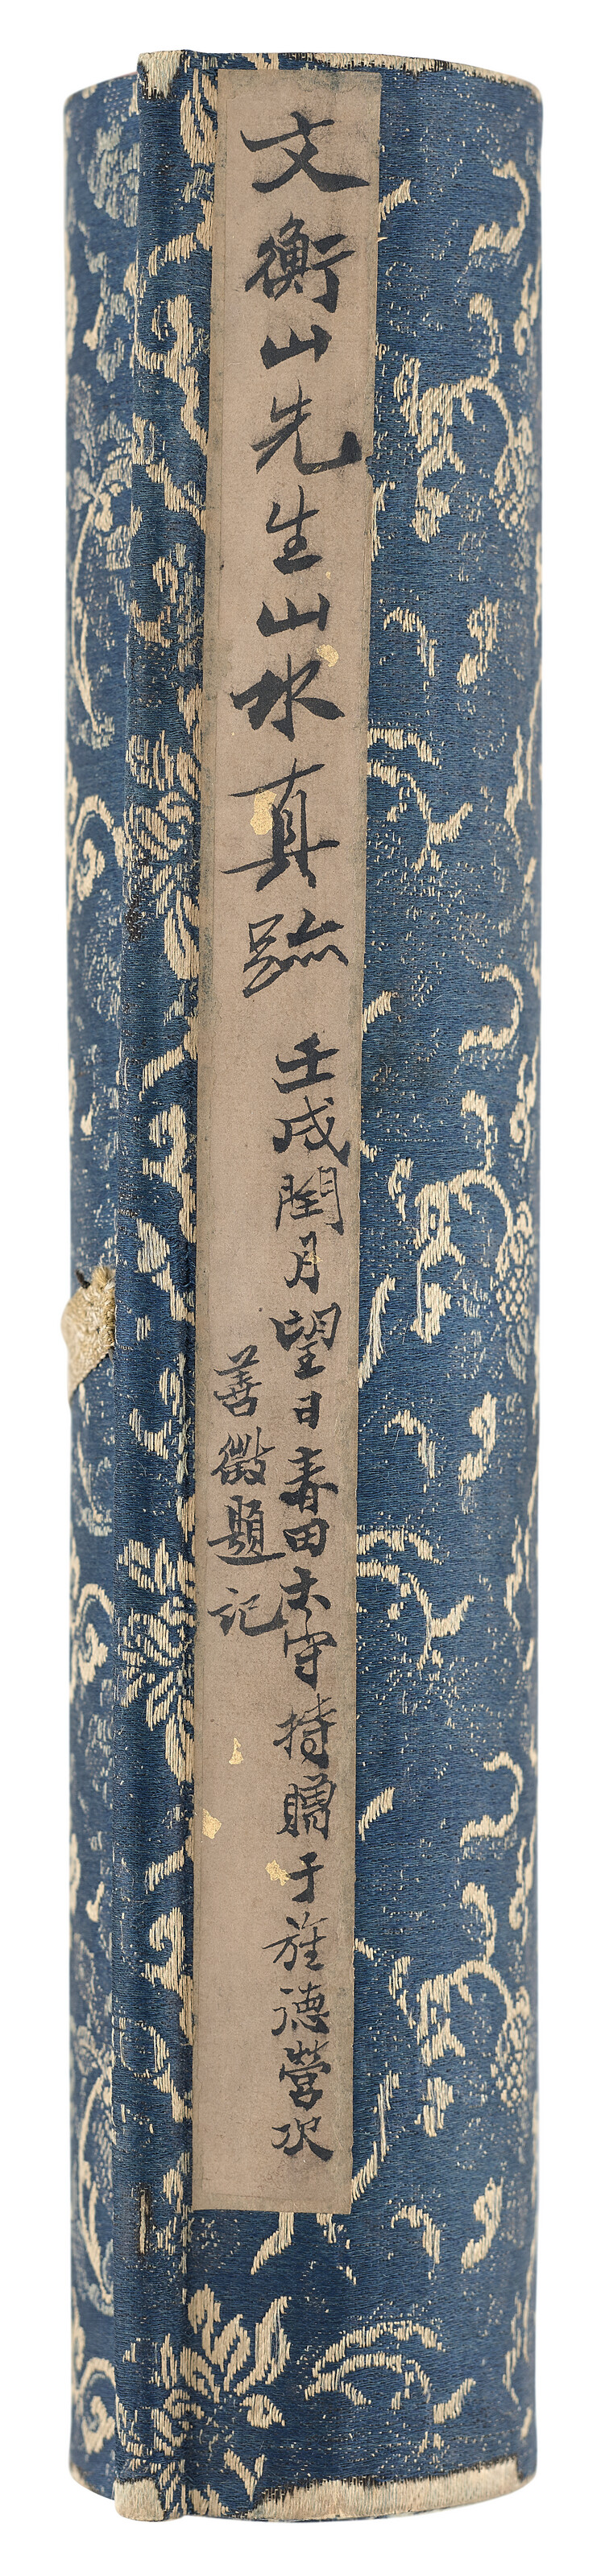 文衡山先生山水真跡
壬戌閏月望日春田太守持贈于旌德營次
善徵題記